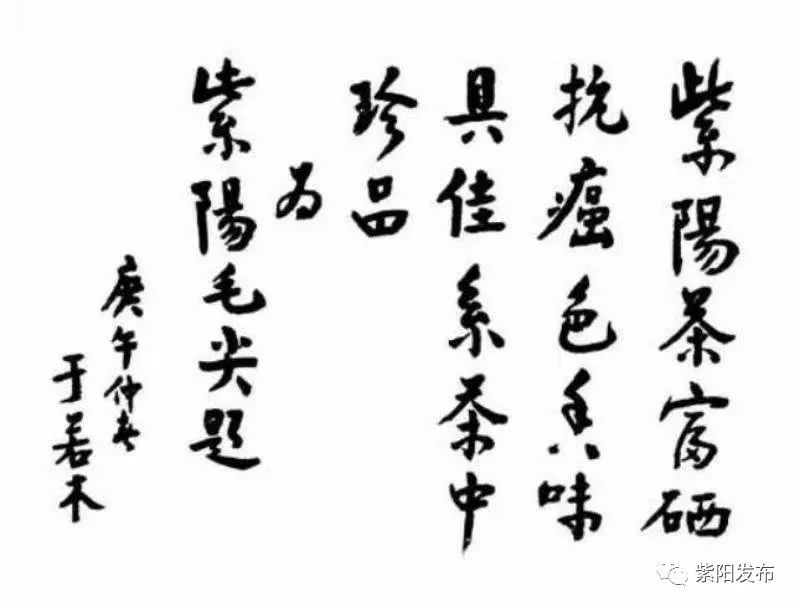 紫陽茶富硒
抗癌色香味
具佳系茶中
珍品
为
紫陽毛尖题
庚午仲春
于若木
紫阳发布